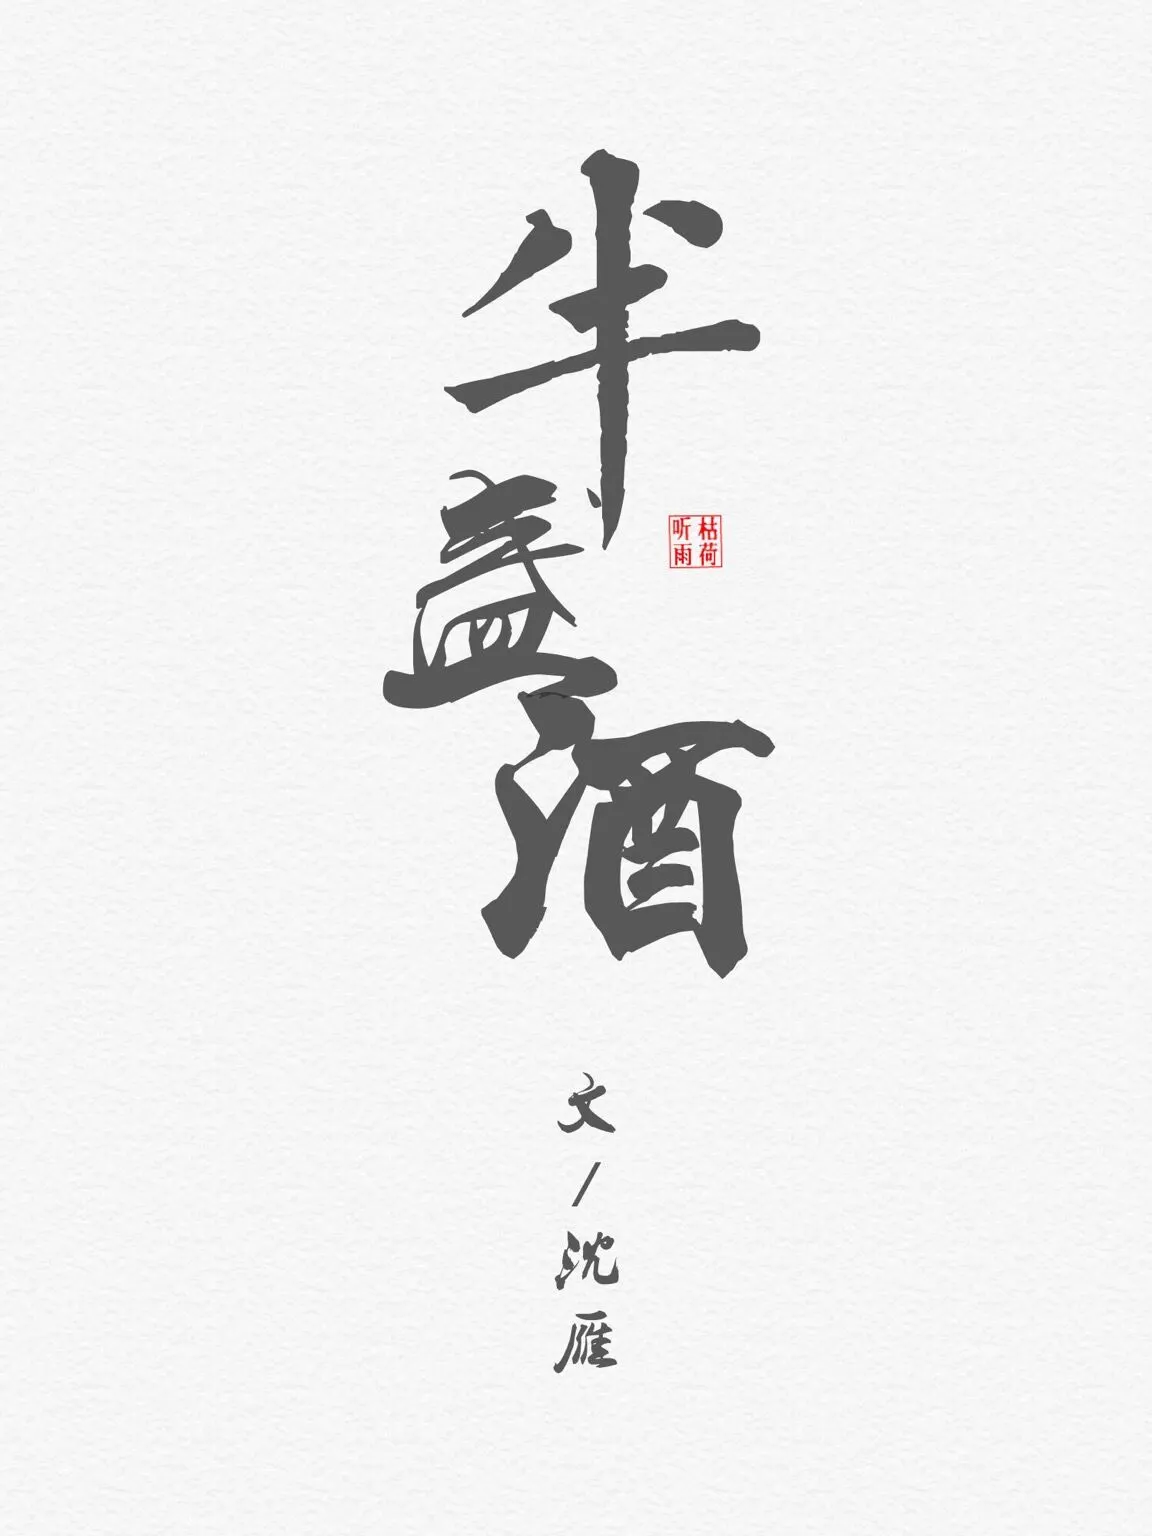 半盏酒
枯荷
听雨
文/沈雁